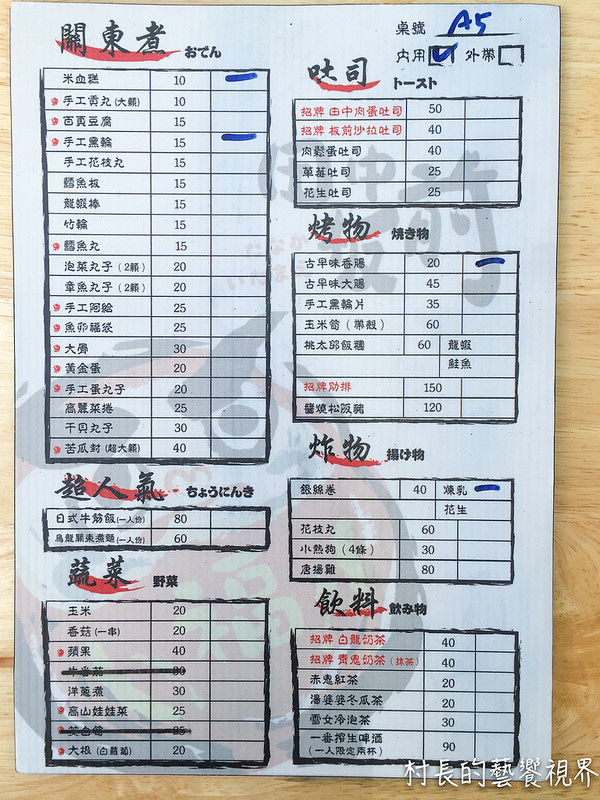 關東煮 おでん
米血糕 10
手工貢丸(大顆) 10
百頁豆腐 15
手工黑輪 15
手工花枝丸 15
鱈魚板 15
龍蝦棒 15
竹輪 15
鱈魚丸 15
泡菜丸子(2顆) 20
章魚丸子(2顆) 20
手工阿給 25
魚卵福袋 25
大腸 30
黃金蛋 20
手工蛋丸子 20
高麗菜捲 25
干貝丸子 30
苦瓜封(超大顆) 40
超人氣 ちょうにんき
日式牛筋飯(一人份) 80
烏龍關東煮麵(一人份) 60
蔬菜 野菜
玉米 20
香菇(一串) 20
蘋果 40
牛番茄 30
洋蔥煮 30
高山娃娃菜 25
茭白筍 25
大根(白蘿蔔) 20
桌號 A5
內用 外帶
吐司 トースト
招牌 田中肉蛋吐司 50
招牌 板前沙拉吐司 40
肉鬆蛋吐司 40
草莓吐司 25
花生吐司 25
烤物 焼き物
古早味香腸 20
古早味大腸 45
手工黑輪片 35
玉米筍(帶殼) 60
桃太郎飯糰 60 龍蝦
鮭魚
招牌肋排 150
醬燒松阪豬 120
炸物 揚げ物
銀絲卷 40 煉乳
花生
花枝丸 60
小熱狗(4條) 30
唐揚雞 80
飲料 飲み物
招牌 白龍奶茶 40
招牌 青鬼奶茶(抹茶) 40
赤鬼紅茶 20
湯婆婆冬瓜茶 20
雪女冷泡茶 30
一番搾生啤酒
(一人限定兩杯) 90
村長的藝饗視界